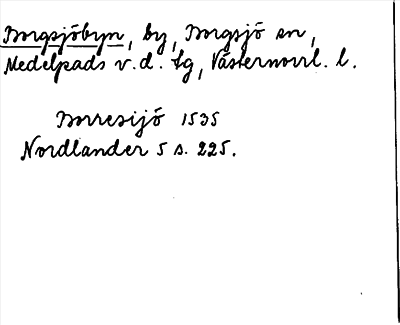 Borgsjöbyn, by, Borgsjö sn,
Medelpads v. d. tg, Västernorrl. l.
Borresijö 1535
Nordlander 5 s. 225.